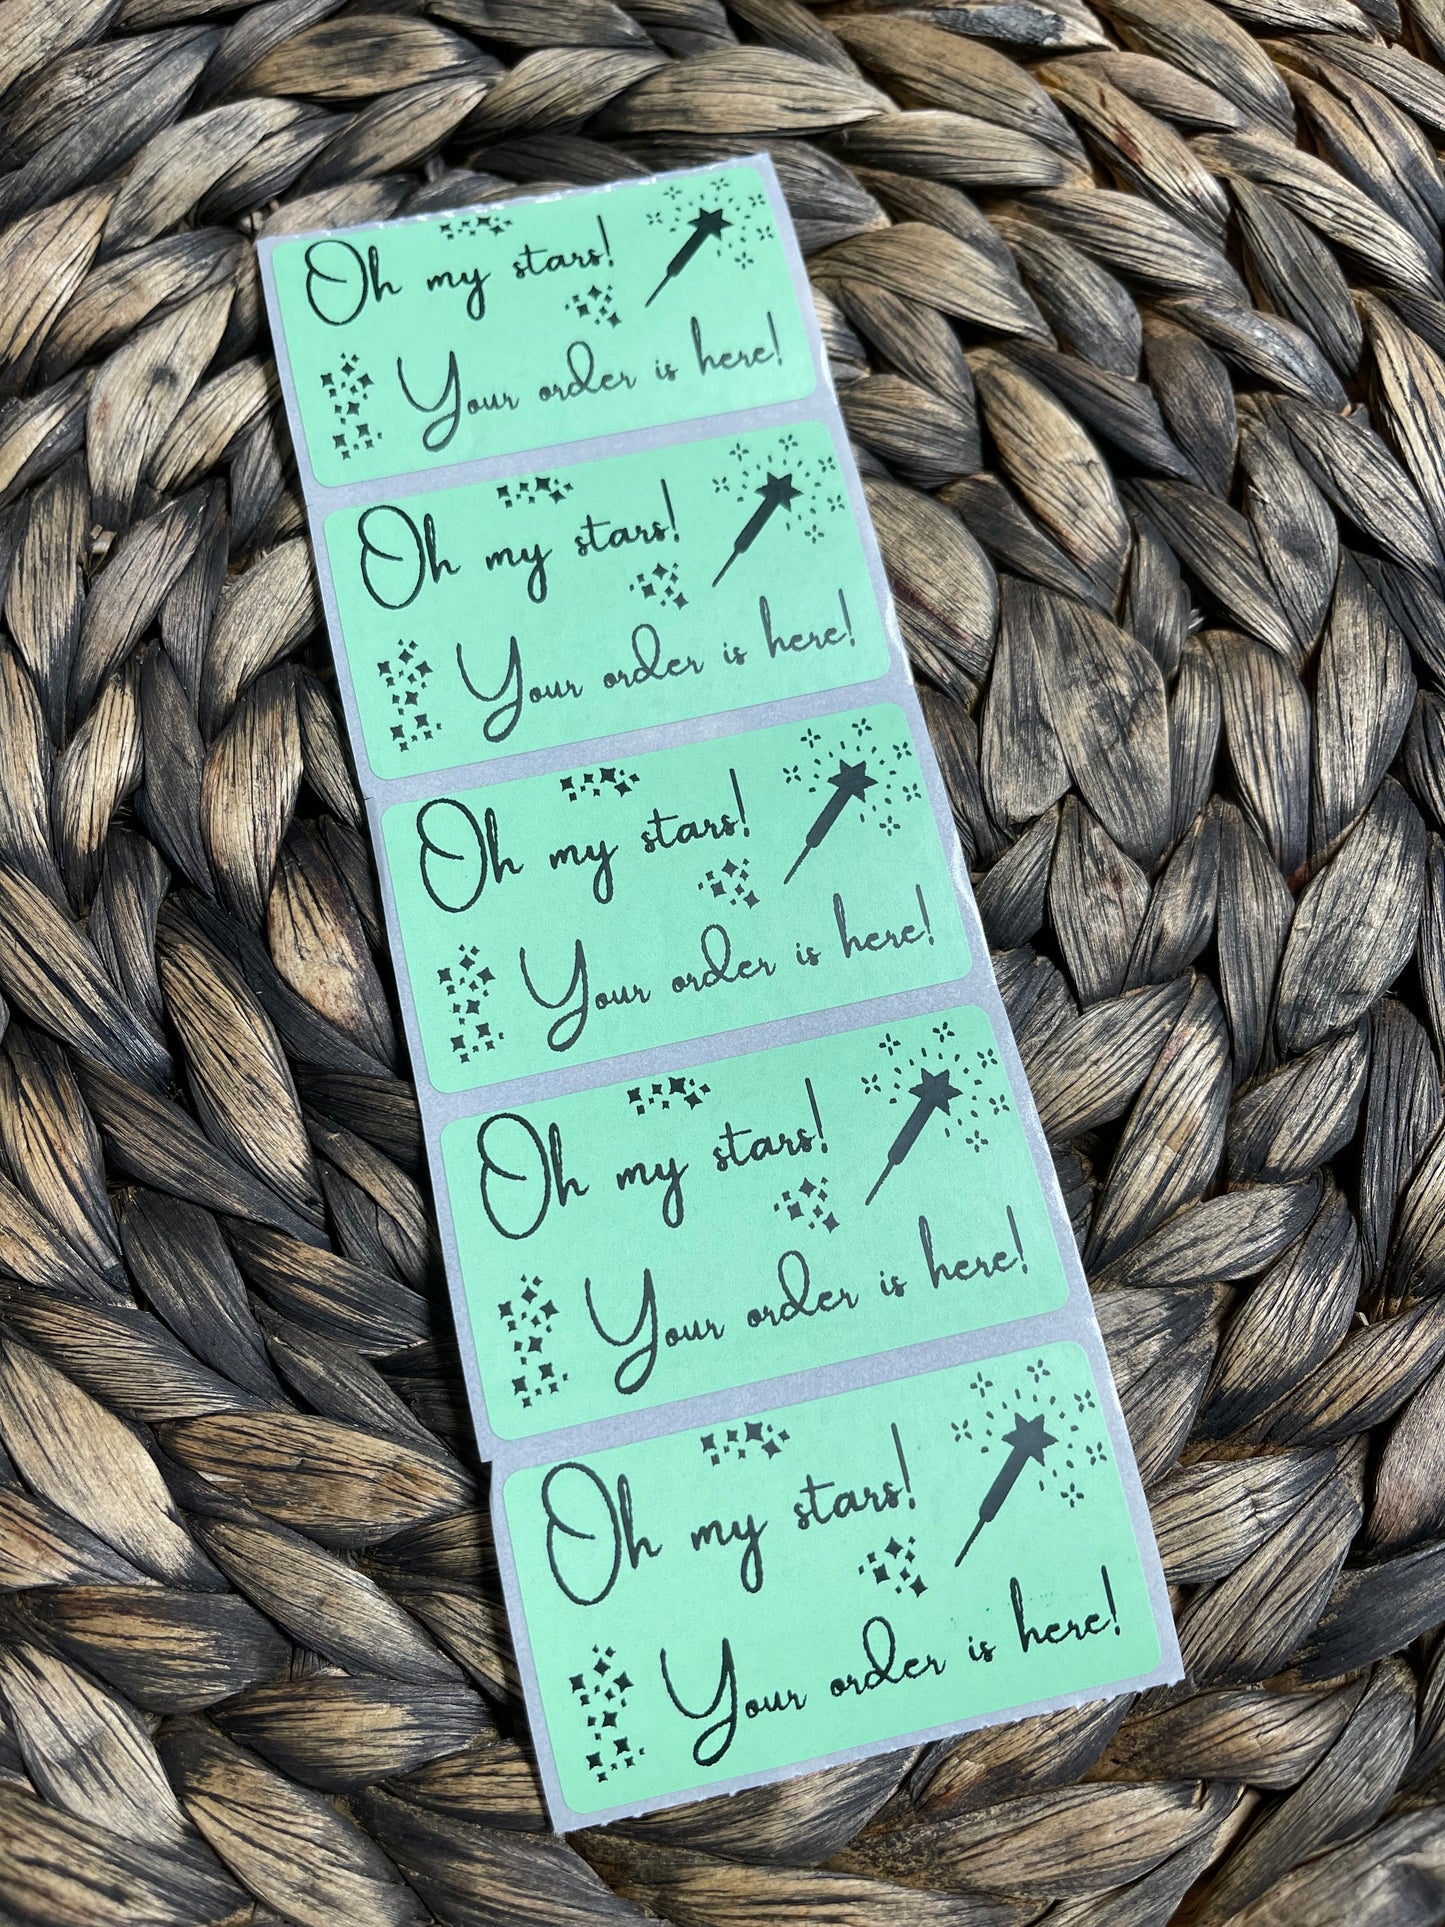 Oh my stars!
Your order is here!
Oh my stars!
Your order is here!
Oh my stars!
Your order is here!
Oh my stars!
Your order is here!
Oh my stars!
Your order is here!